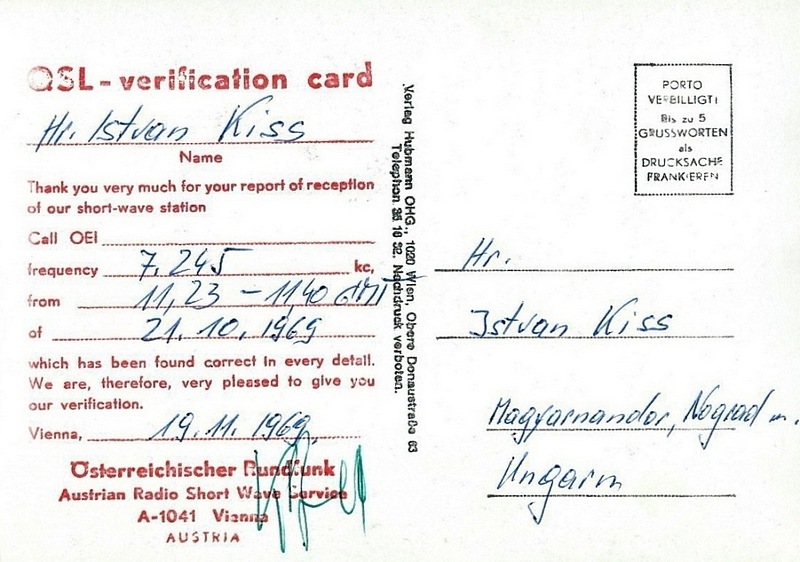 QSL - verification card
Hr. Istvan Kiss
Name
Thank you very much for your report of reception
of our short-wave station
Call OEI
frequency 7.245 kc,
from 11,23 - 11,40 GMT
of 21.10.1969
which has been found correct in every detail.
We are, therefore, very pleased to give you
our verification.
Vienna, 19.11.1969.
Österreichischer Rundfunk
Austrian Radio Short Wave Service
A-1041 Vienna
AUSTRIA
Verlag Hubmann OHG., 1020 Wien, Obere Donaustraße 63
Telephon 35 16 32. Nachdruck verboten.
PORTO
VERBILLIGT!
Bis zu 5
GRUSSWORTEN
als
DRUCKSACHE
FRANKIEREN
Hr.
Istvan Kiss
Magyarnandor, Nograd m.
Ungarn